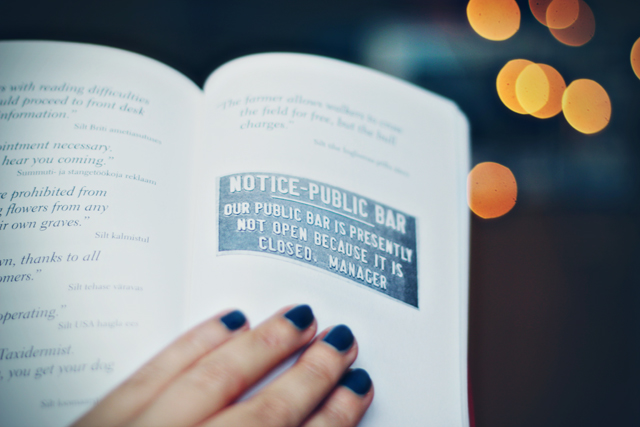 s with reading difficulties
uld proceed to front desk
information."
Silt
ointment necessary.
hear you coming."
Summuti- ja stangetöökoja reklaam
re prohibited from
g flowers from any
ir own graves."
Silt kalmistul
wn, thanks to all
omers."
Silt
operating."
Silt USA
Taxidermist.
, you get your dog
Silt
"The farmer allows walkers to cross
the field for free, but the bull
charges."
Silt
NOTICE-PUBLIC BAR
OUR PUBLIC BAR IS PRESENTLY
NOT OPEN BECAUSE IT IS
CLOSED. MANAGER